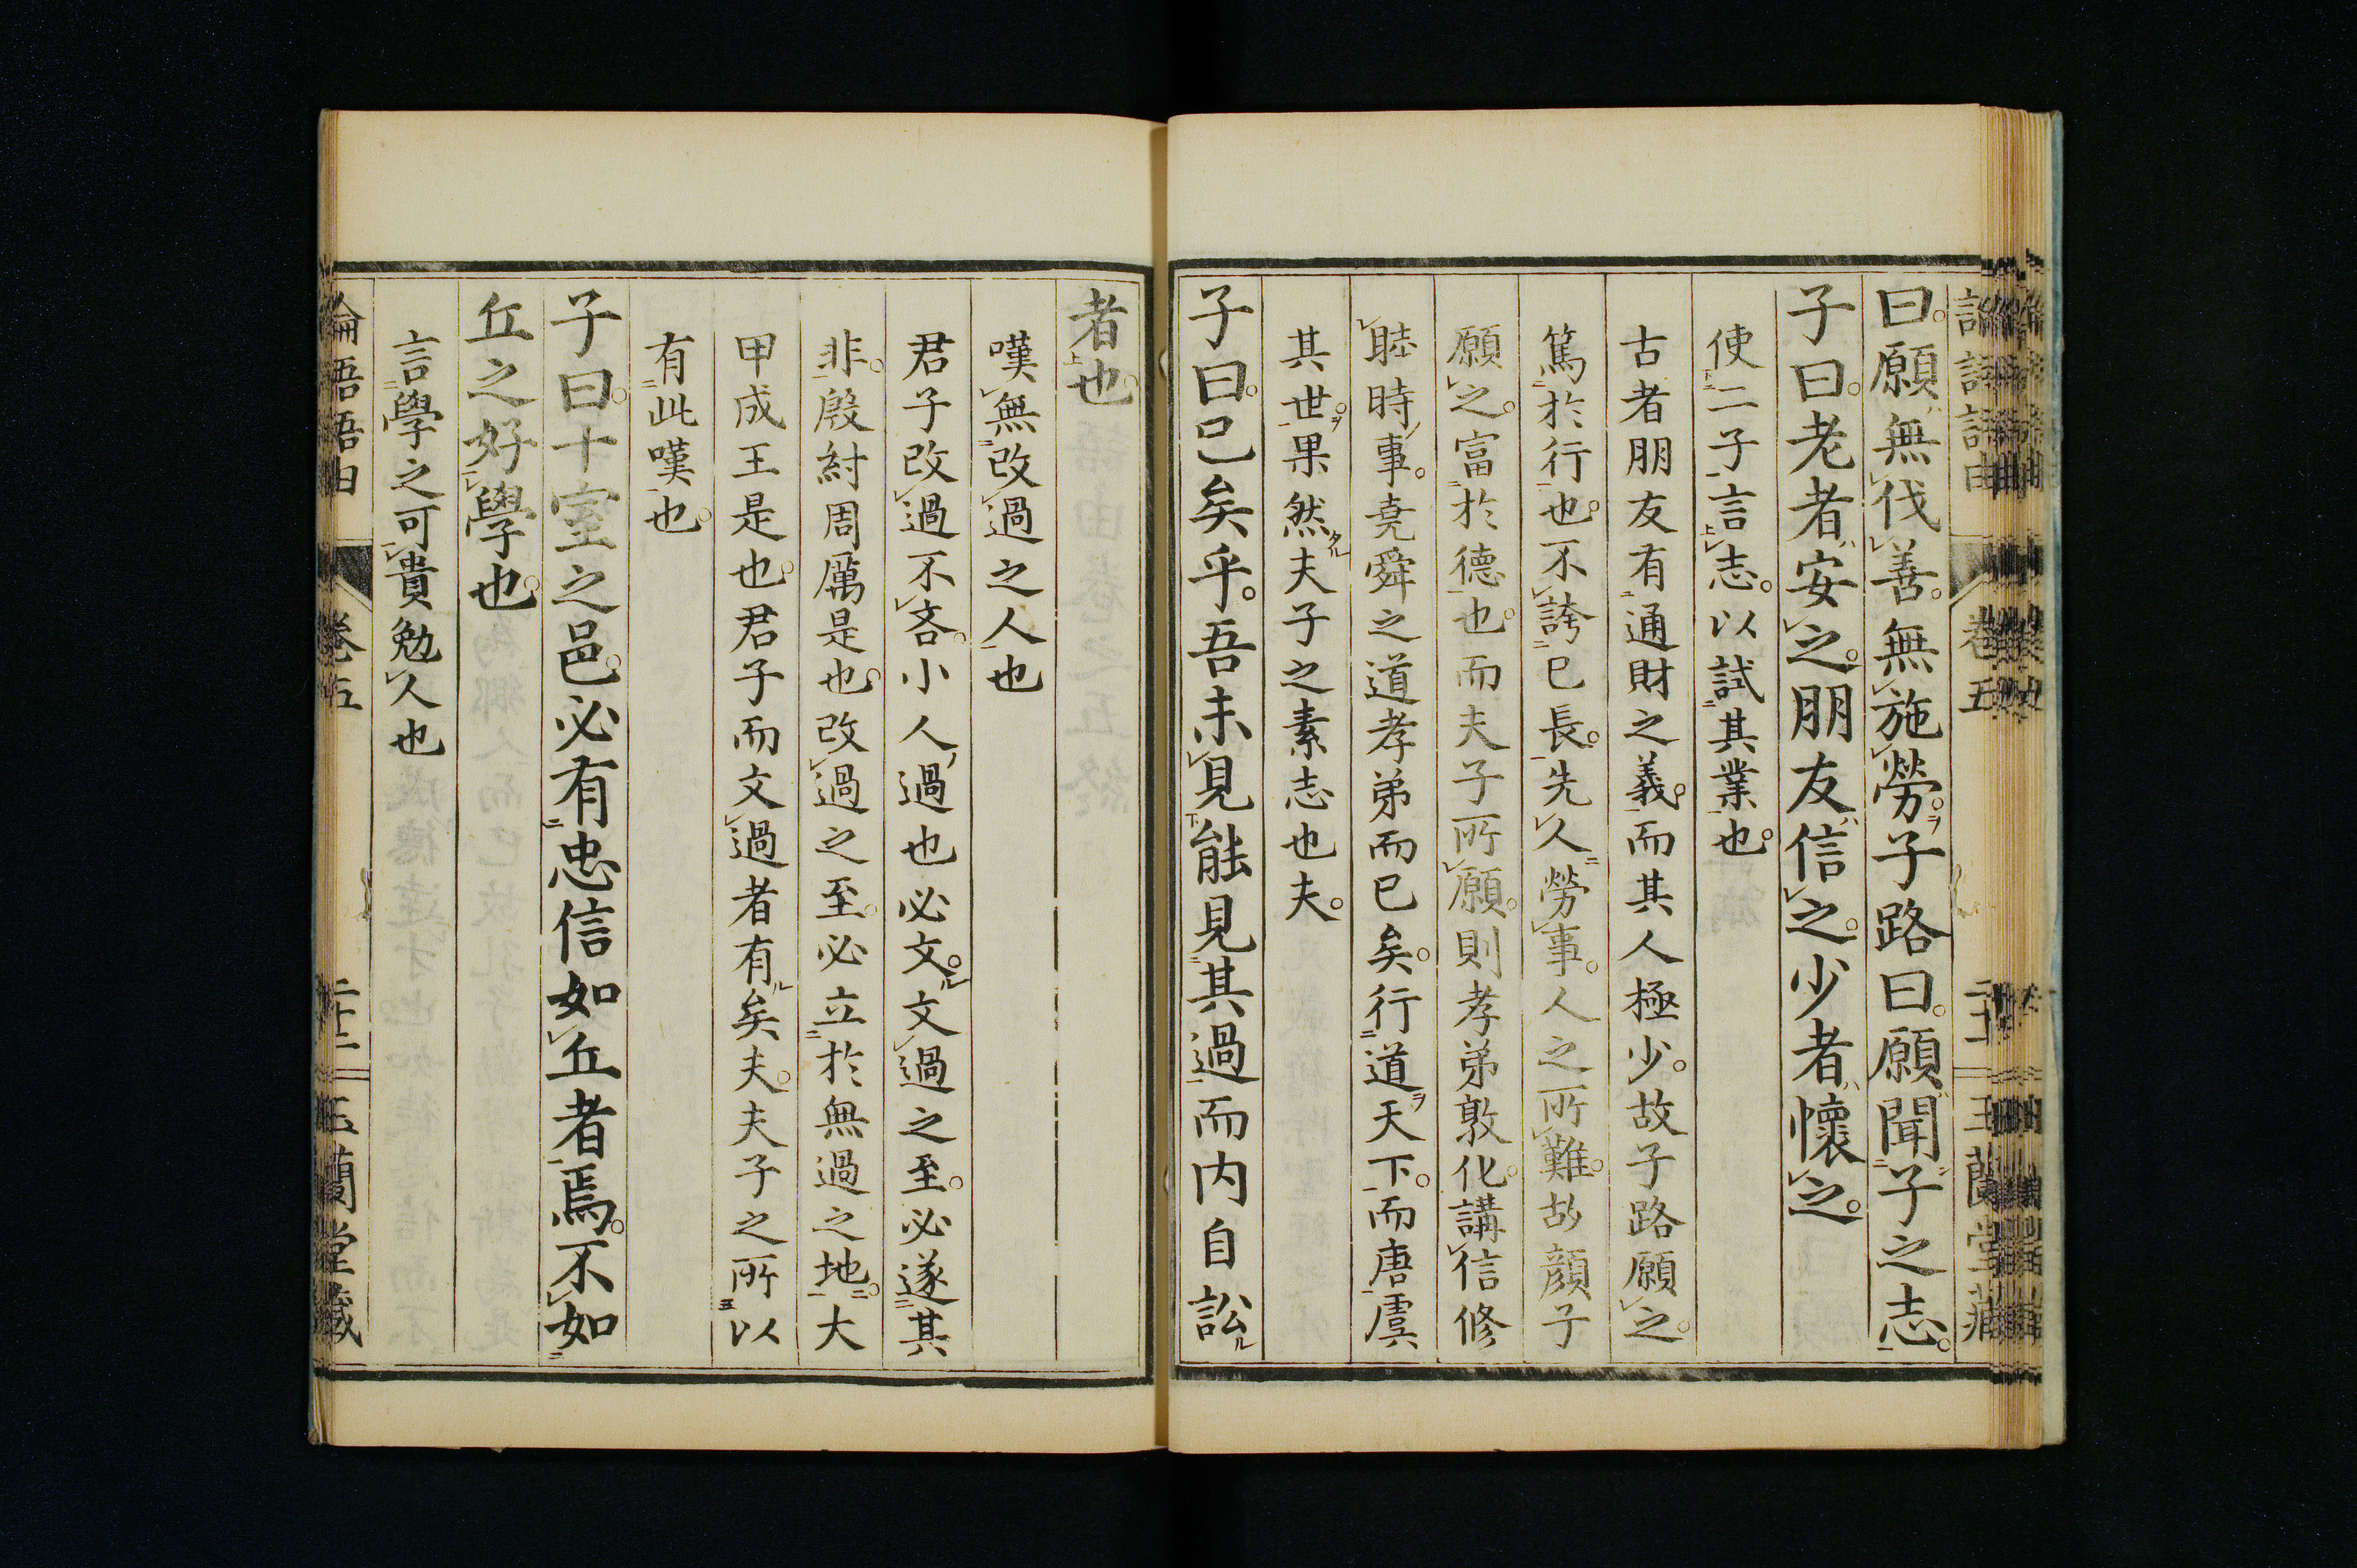 曰。願無伐善。無施勞。子路曰。願聞子之志。
子曰。老者安之。朋友信之。少者懷之。
使二子言志。以試其業也。
古者朋友有通財之義。而其人極少。故子路願之。
篤於行也。不誇己長。先人勞事。人之所難。故顔子
願之。富於德也。而夫子所願。則孝弟敦化。講信修
睦時事。堯舜之道孝弟而已矣。行道天下。而唐虞
其世。果然夫子之素志也夫。
子曰。已矣乎。吾未見能見其過而内自訟
者也。
嘆無改過之人也
君子改過不吝。小人過也必文。文過之至。必遂其
非。殷紂周厲是也。改過之至。必立於無過之地。大
甲成王是也。君子而文過者有矣夫。夫子之所以
有此嘆也。
子曰。十室之邑。必有忠信如丘者焉。不如
丘之好學也。
言學之可貴勉人也
論語語由 卷五 二十二 玉蘭堂藏